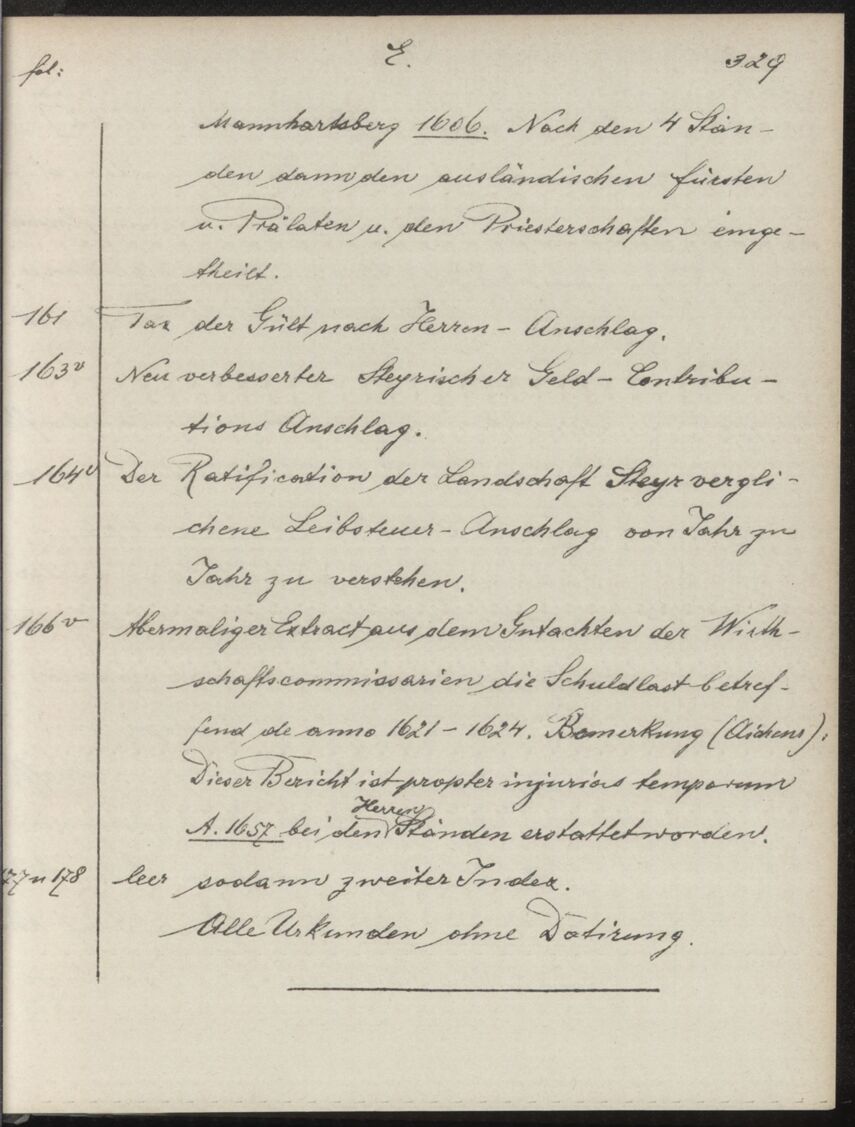 fol: E. 329
Mannhartsberg 1606. Nach den 4 Stän-
den dann den ausländischen Fürsten
u. Prälaten u. den Priesterschaften einge-
theilt.
161 Tax der Gült nach Herren-Anschlag.
163v Neu verbesserter Steyrischer Geld-Contribu-
tions Anschlag.
164v Der Ratification der Landschaft Steyr vergli-
chene Leibsteuer-Anschlag von Jahr zu
Jahr zu verstehen.
166v Abermaliger Extract aus dem Gutachten der Wirth-
schaftscommissarien die Schuldlast betref-
fend de anno 1621-1624. Bemerkung (Aichens):
Dieser Bericht ist propter injurias temporum
A. 1657 bei den Herren Ständen erstattet worden.
177 u 178 leer sodann zweiter Index.
Alle Urkunden ohne Datirung.